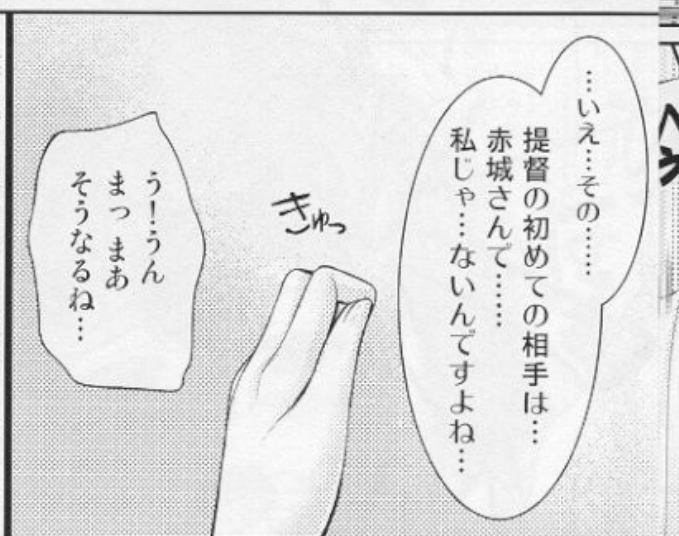 …いえ…その……
提督の初めての相手は…
赤城さんで……
私じゃ…ないんですよね…
きゅっ
う！うん
まっまあ
そうなるね…